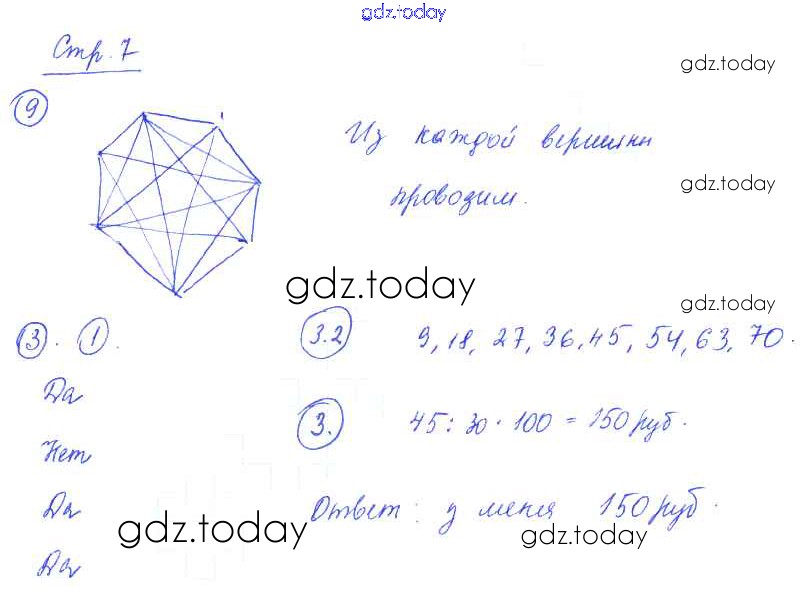 gdz.today
Стр. 7
gdz.today
9
Из каждой вершины
проводим.
gdz.today
gdz.today
gdz.today
3. 1.
3.2 9, 18, 27, 36, 45, 54, 63, 70.
Да
3. 45 : 30 · 100 = 150 руб.
Нет
Ответ: у меня 150 руб.
Да
gdz.today
gdz.today
Да